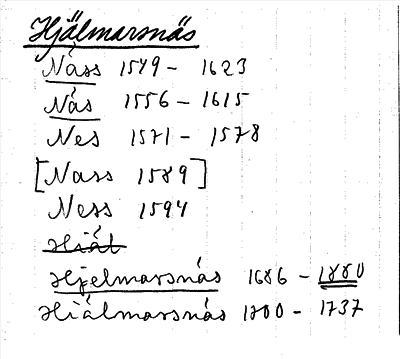 Hjälmarsnäs
Näss 1549 - 1623
Näs 1556 - 1615
Nes 1571 - 1578
[Nass 1589]
Ness 1594
Hiät
Hjelmarsnäs 1686 - 1880
Hiälmarsnäs 1700 - 1737